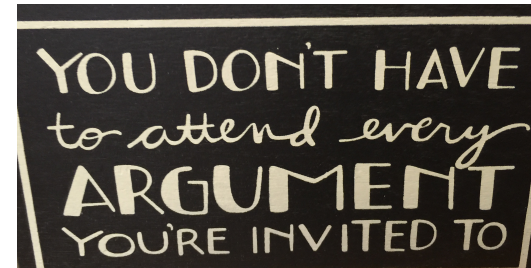 YOU DON'T HAVE
to attend every
ARGUMENT
YOU'RE INVITED TO